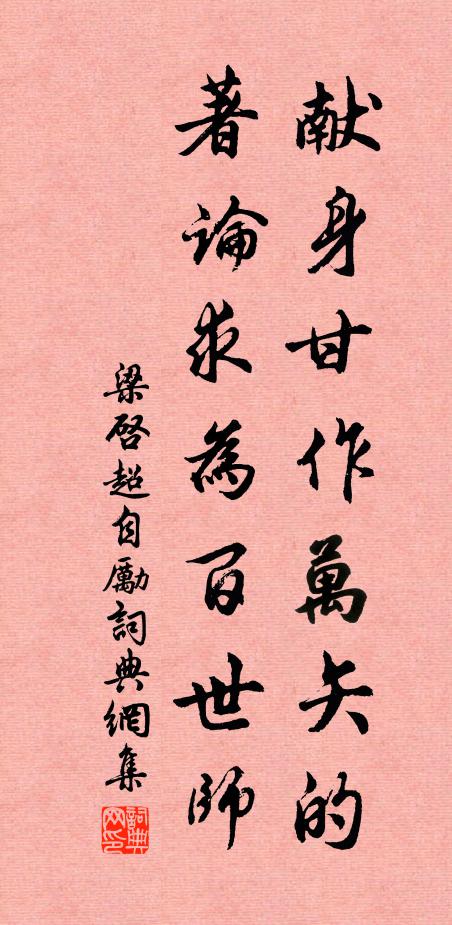 献身甘作萬矢的
著論求為百世師
梁啓超自勵詞典網集
詞典网印